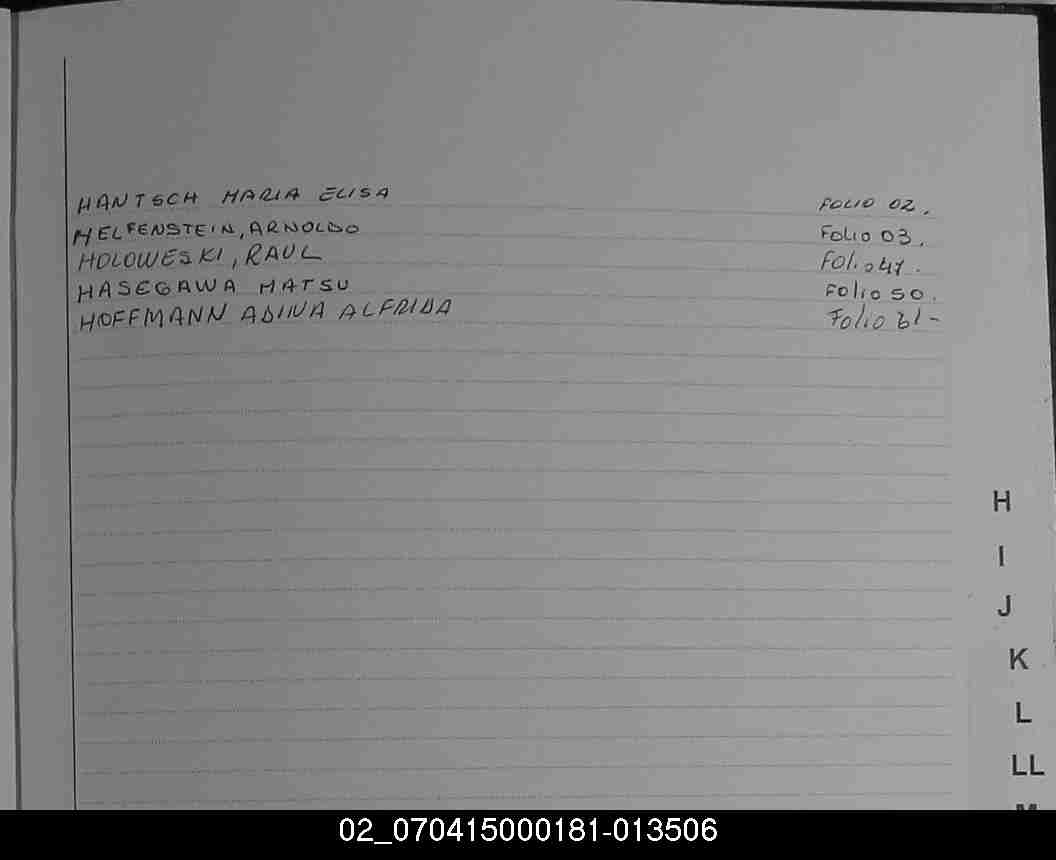 HANTSCH MARIA ELISA FOLIO 02.
HELFENSTEIN, ARNOLDO FOLIO 03.
HOLOWESKI, RAUL FOLIO
HASEGAWA MATSU FOLIO 50.
HOFFMANN ALFRIDA FOLIO
H
I
J
K
L
LL
M
02_070415000181-013506